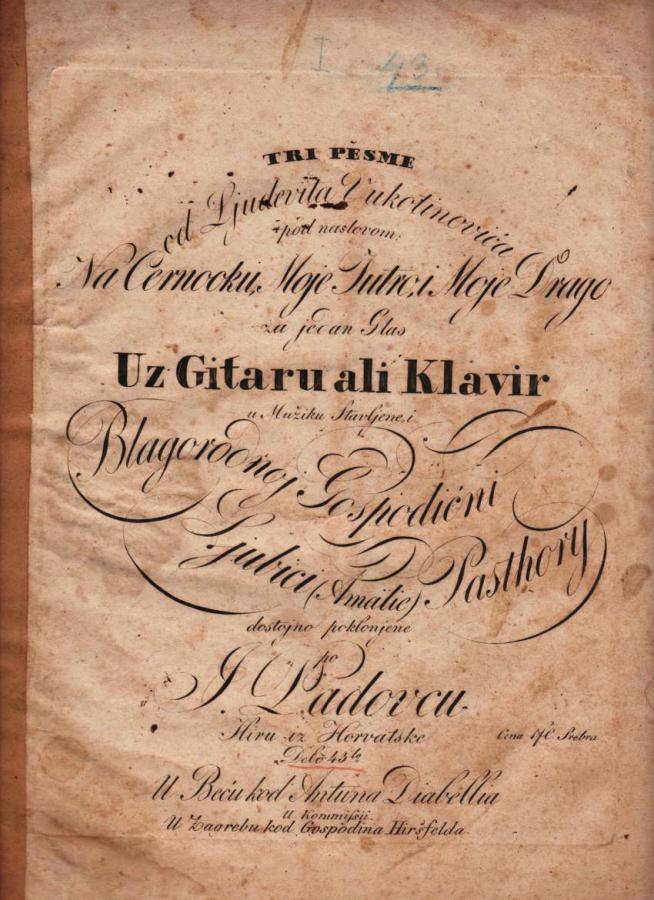 I 43.
TRI PĚSME
od Ljudevita Vukotinovića
pod naslovom:
Na Černooku, Moje Jutro, i Moje Drago
za jedan Glas
Uz Gitaru ali Klavir
u Mužiku Stavljene, i
Blagorodnoj Gospodićni
Ljubici (Amalie) Pasthory
dostojno poklonjene
po
J. Padovcu
Hiru iz Horvatske
Cena 17C Srebra
Delo 43to
U Beću kod Antuna Diabellia
U Kommissii
U Zagrebu kod Gospodina Hiršfelda.